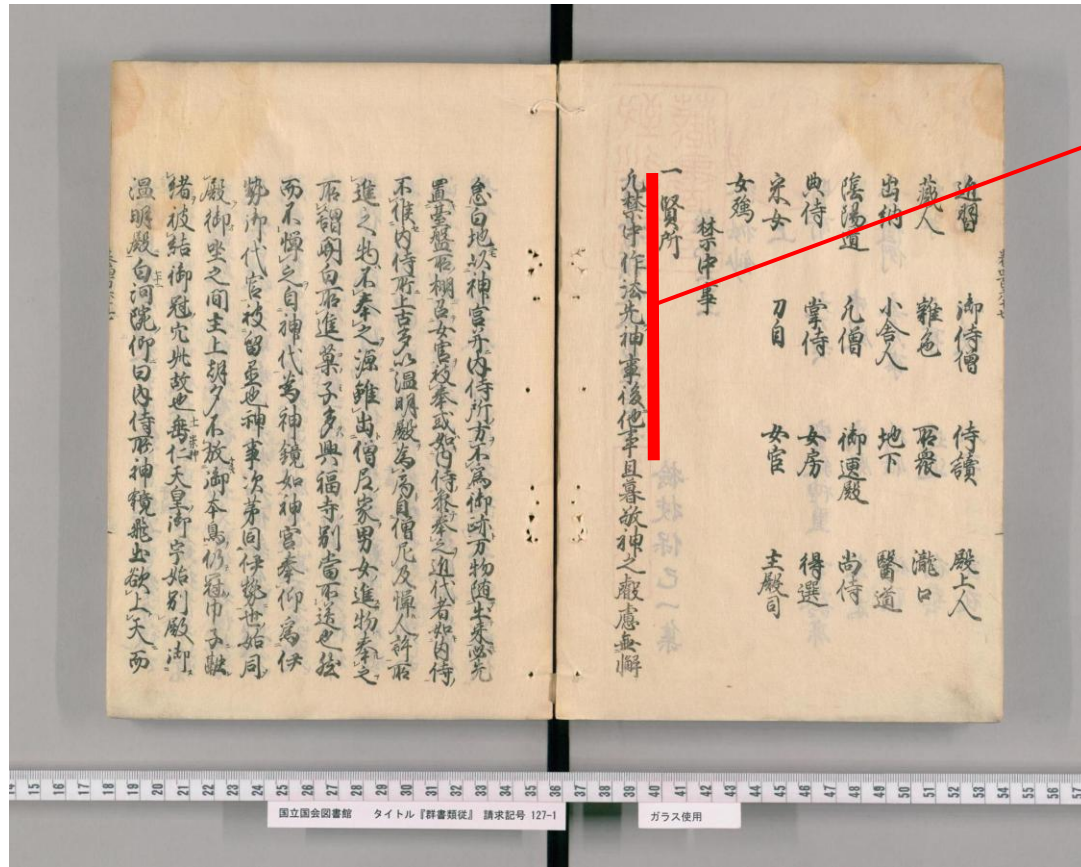 近習 御侍僧 侍讀 殿上人
蔵人 雜色 所衆 瀧口
出納 小舎人 地下 醫道
陰陽道 凡僧 御更殿 尚侍
典侍 掌侍 女房 得選
采女 刀自 女官 主殿司
女孺
禁中事
一賢所
凡禁中作法先神事後他事旦暮敬神之叡慮無懈
怠白地以神宮并内侍所方不為御跡万物随出来必先
置臺盤所棚召女官被奉或如内侍参奉之近代者如内侍
不候内侍所上古多以温明殿為 自僧尼及憚人許所
進之物不奉之源雖出僧尼家男女進物奉之
所謂明白所進菓子多興福寺別當所送也然
而不憚之自神代為神鏡如神宮奉仰為伊
勢御代官被留置也神事次第同伊勢也始同
殿御坐之間主上朝夕不放御本鳥仍冠巾子
緒被結御冠穴此故也垂仁天皇御宇始別殿御
温明殿白河院仰曰内侍所神鏡飛出欲上天而
14 15 16 17 18 19 20 21 22 23 24 25 26 27 28 29 30 31 32 33 34 35 36 37 38 39 40 41 42 43 44 45 46 47 48 49 50 51 52 53 54 55 56 57
国立国会図書館 タイトル『群書類従』 請求記号 127-1
ガラス使用